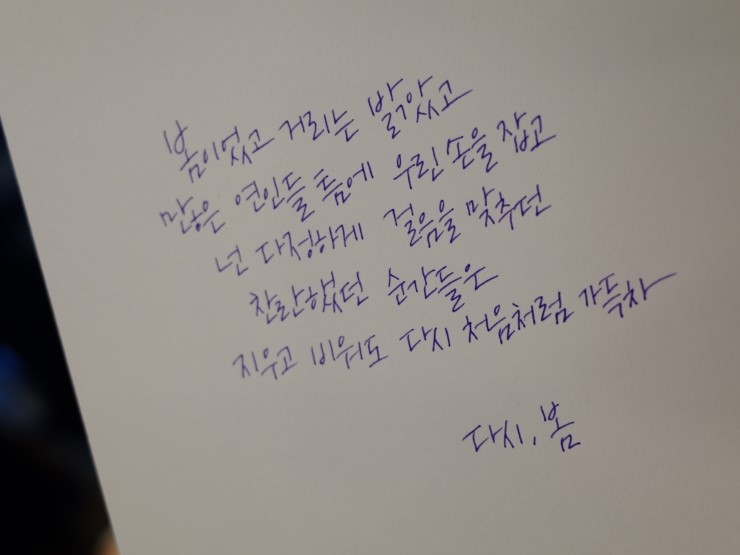 봄이었고 거리는 밝았고
많은 연인들 틈에 우린 손을 잡고
넌 다정하게 걸음을 맞추던
찬란했던 순간들은
지우고 비워도 다시 처음처럼 가득차
다시, 봄